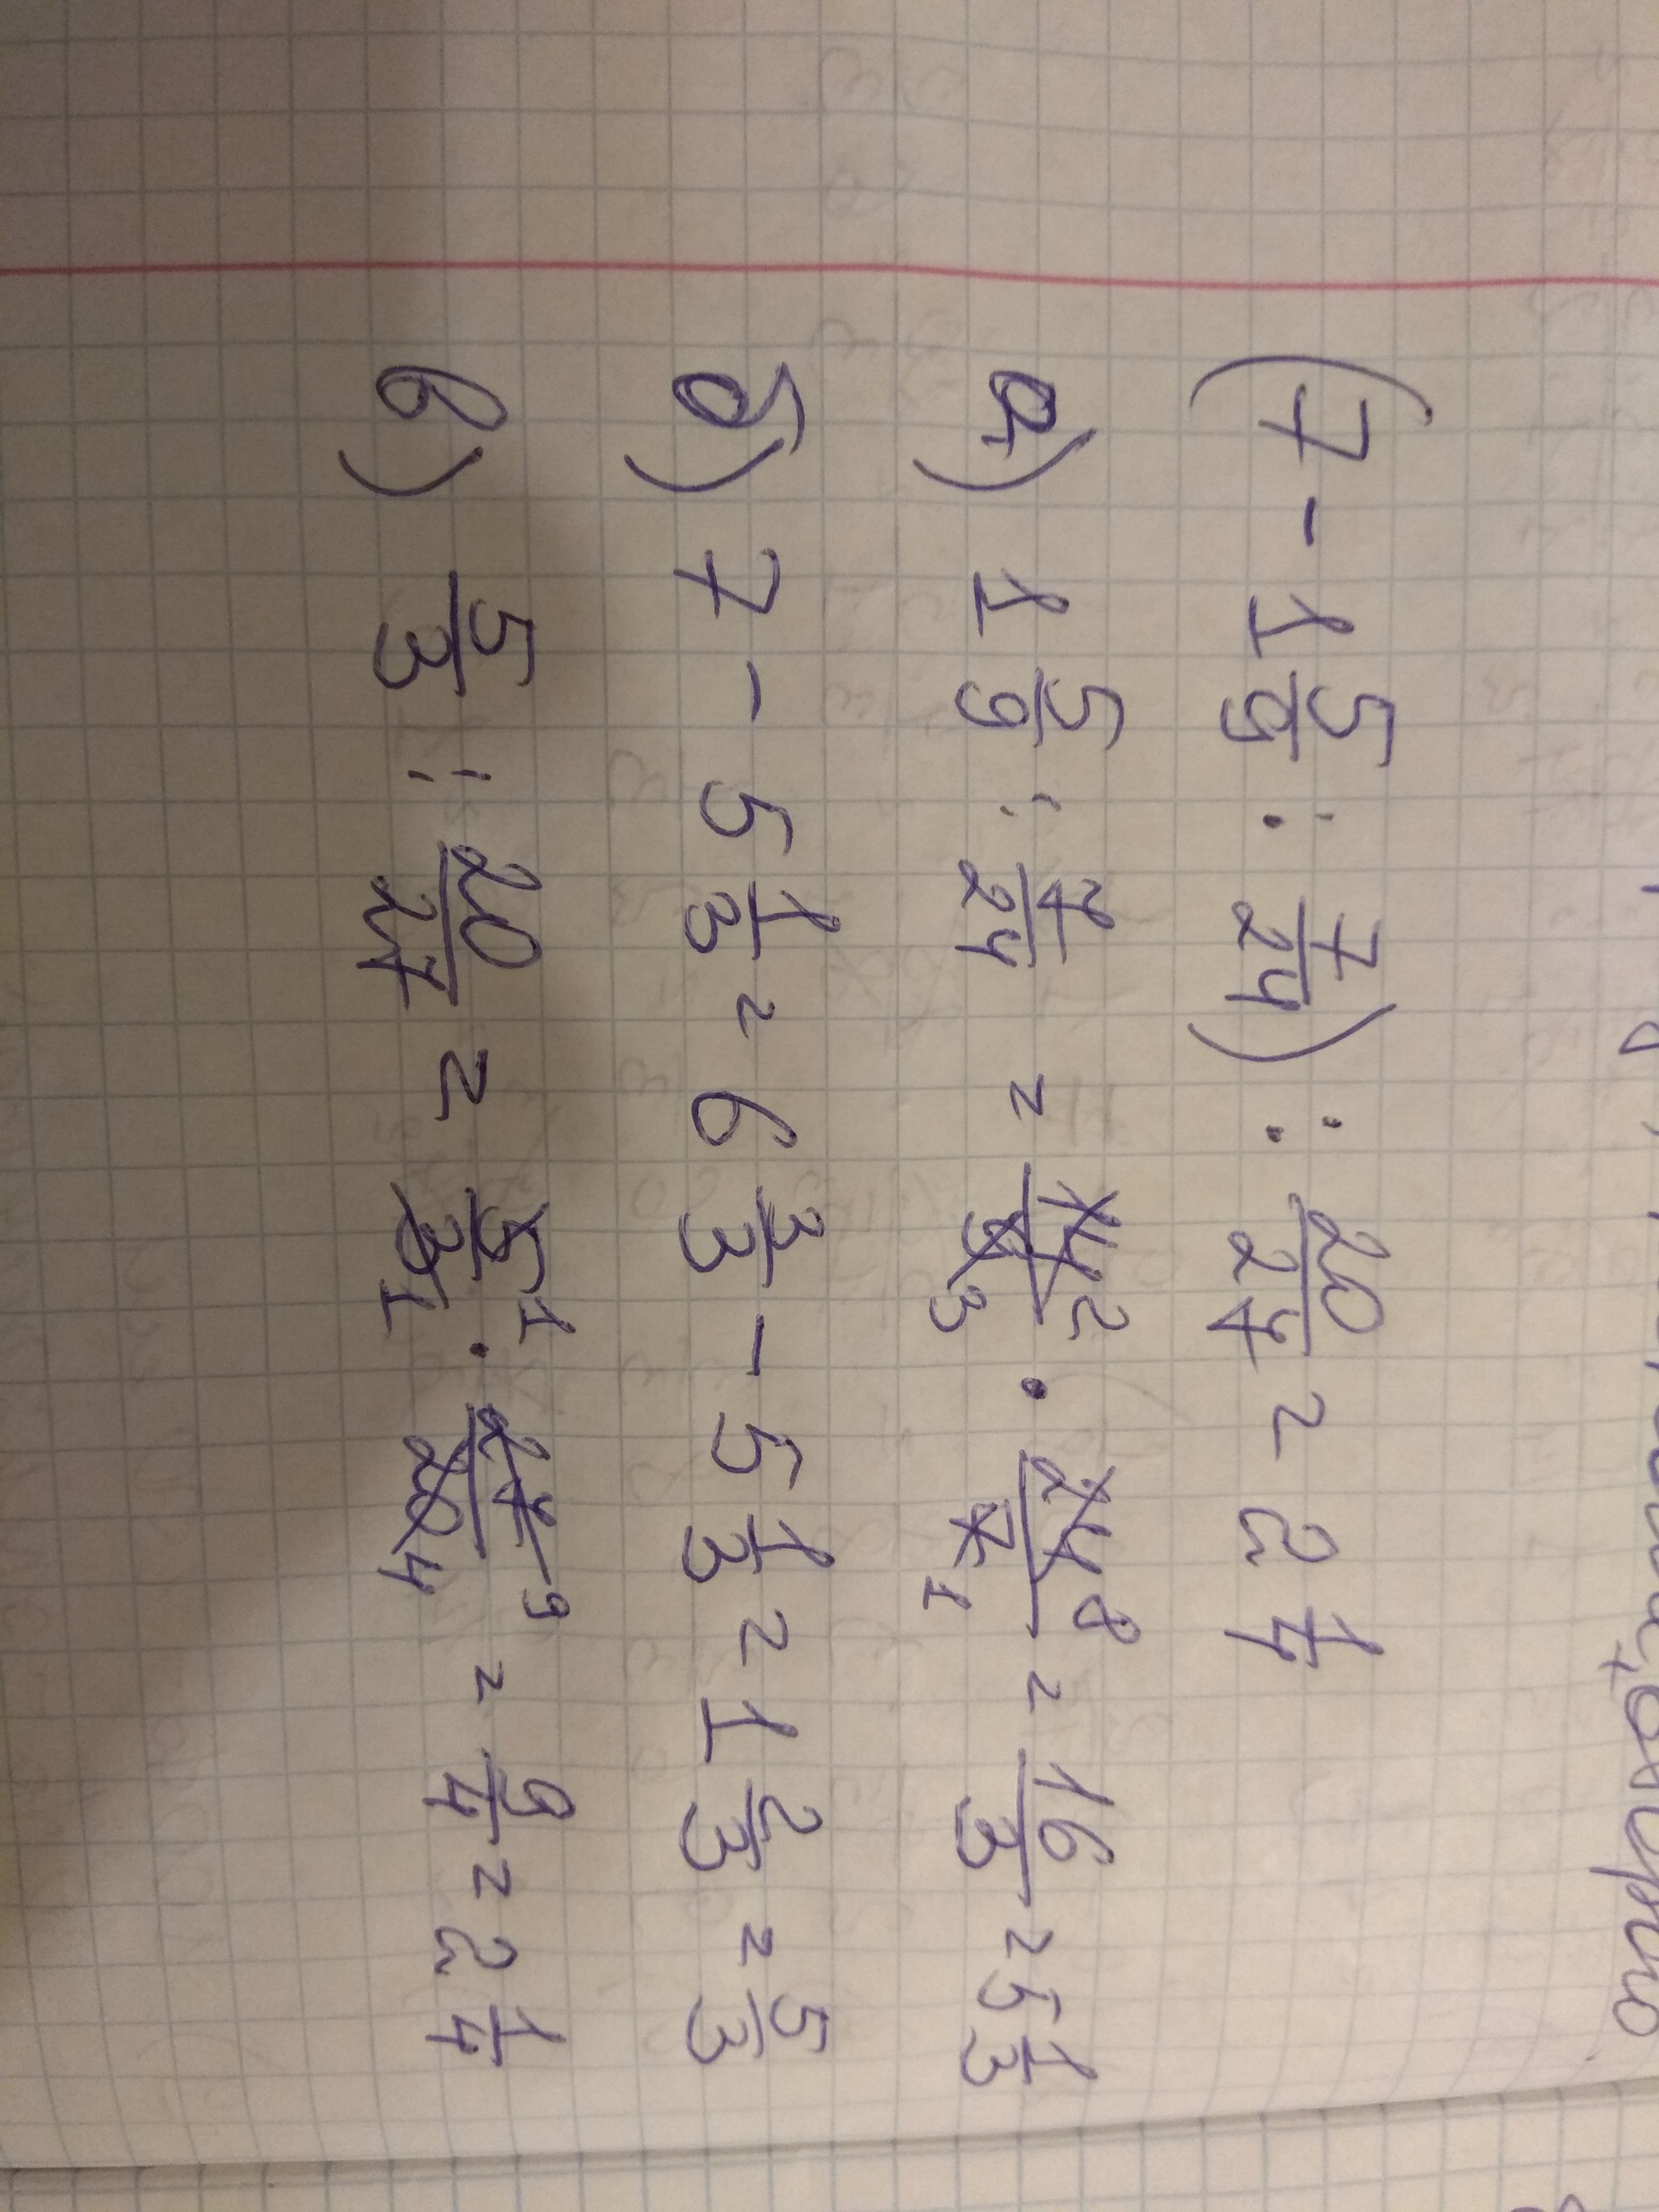 (7 - 1 5/9 : 7/24) : 20/27 = 2 1/4
а) 1 5/9 : 7/24 = 14 2/9 3 · 24 8/7 1 = 16/3 = 5 1/3
б) 7 - 5 1/3 = 6 3/3 - 5 1/3 = 1 2/3 = 5/3
в) 5/3 : 20/27 = 5 1/3 1 · 27 9/20 4 = 9/4 = 2 1/4